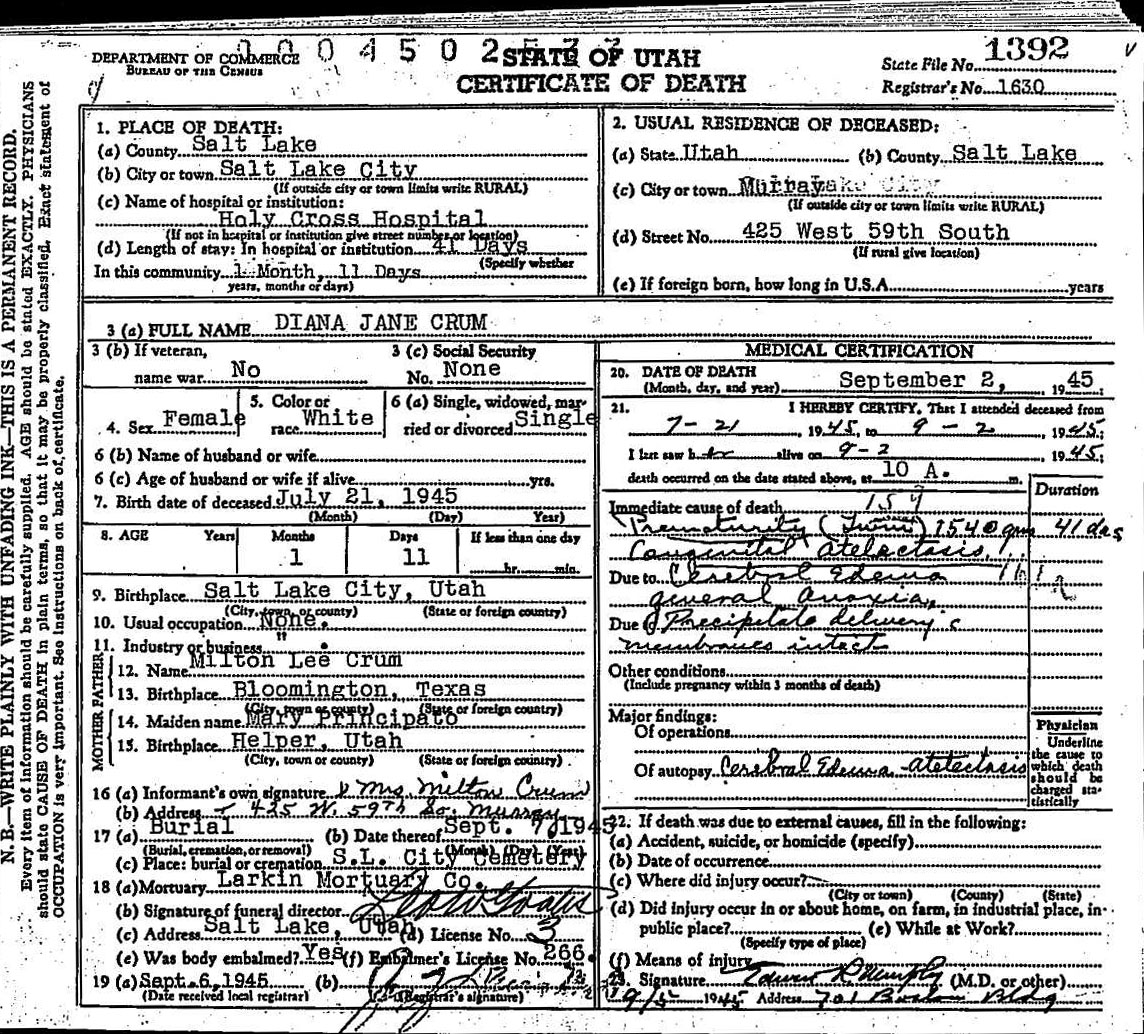 0 0 0 4 5 0 2 5 7 7
DEPARTMENT OF COMMERCE
BUREAU OF THE CENSUS
STATE OF UTAH
CERTIFICATE OF DEATH
State File No. 1392
Registrar's No. 1630
N. B.—WRITE PLAINLY WITH UNFADING INK—THIS IS A PERMANENT RECORD.
Every item of information should be carefully supplied. AGE should be stated EXACTLY. PHYSICIANS
should state CAUSE OF DEATH in plain terms, so that it may be properly classified. Exact statement of
OCCUPATION is very important. See instructions on back of certificate.
1. PLACE OF DEATH:
(a) County Salt Lake
(b) City or town Salt Lake City
(If outside city or town limits write RURAL)
(c) Name of hospital or institution:
Holy Cross Hospital
(If not in hospital or institution give street number or location)
(d) Length of stay: In hospital or institution 41 Days
(Specify whether
In this community 1 Month, 11 Days
years, months or days)
2. USUAL RESIDENCE OF DECEASED:
(a) State Utah (b) County Salt Lake
(c) City or town Murray
(If outside city or town limits write RURAL)
(d) Street No. 425 West 59th South
(If rural give location)
(e) If foreign born, how long in U.S.A. years
3 (a) FULL NAME DIANA JANE CRUM
3 (b) If veteran,
name war No
3 (c) Social Security
No. None
4. Sex Female
5. Color or
race White
6 (a) Single, widowed, mar-
ried or divorced Single
6 (b) Name of husband or wife
6 (c) Age of husband or wife if alive yrs.
7. Birth date of deceased July 21, 1945
(Month) (Day) Year)
8. AGE Years Months Days If less than one day
1 11 hr. min.
9. Birthplace Salt Lake City, Utah
(City, town, or county) (State or foreign country)
10. Usual occupation None.
11. Industry or business "
FATHER
12. Name Milton Lee Crum
13. Birthplace Bloomington, Texas
(City, town or county) (State or foreign country)
MOTHER
14. Maiden name Mary Principato
15. Birthplace Helper, Utah
(City, town or county) (State or foreign country)
16 (a) Informant's own signature Mrs Milton Crum
(b) Address 425 W. 59th So. Murray
17 (a) Burial (b) Date thereof Sept. 7, 1945
(Burial, cremation, or removal) (Month) (Day) (Year)
(c) Place: burial or cremation S.L. City Cemetery
18 (a) Mortuary Larkin Mortuary Co.
(b) Signature of funeral director
(c) Address Salt Lake, Utah (d) License No. 3
(e) Was body embalmed? Yes (f) Embalmer's License No. 266.
19 (a) Sept. 6, 1945 (b)
(Date received local registrar) (Registrar's signature)
MEDICAL CERTIFICATION
20. DATE OF DEATH
(Month, day, and year) September 2, 1945;
21. I HEREBY CERTIFY, That I attended deceased from
7-21, 1945, to 9-2 1945;
I last saw her alive on 9-2 1945;
death occurred on the date stated above, at 10 A. m.
Duration
Immediate cause of death 159
Prematurity (Twin) 1540 gm 41 das
Congenital atelectasis
Due to Cerebral Edema
general anoxia,
Due to Precipitate delivery c
membranes intact
Other conditions
(Include pregnancy within 3 months of death)
Major findings:
Of operations
Of autopsy Cerebral Edema - atelectasis
Physician
Underline
the cause to
which death
should be
charged sta-
tistically
22. If death was due to external causes, fill in the following:
(a) Accident, suicide, or homicide (specify)
(b) Date of occurrence
(c) Where did injury occur?
(City or town) (County) (State)
(d) Did injury occur in or about home, on farm, in industrial place, in-
public place? (e) While at Work?
(Specify type of place)
(f) Means of injury
23. Signature Edwin R Murphy (M.D. or other)
9/5 1945 Address 701 Boston Bldg